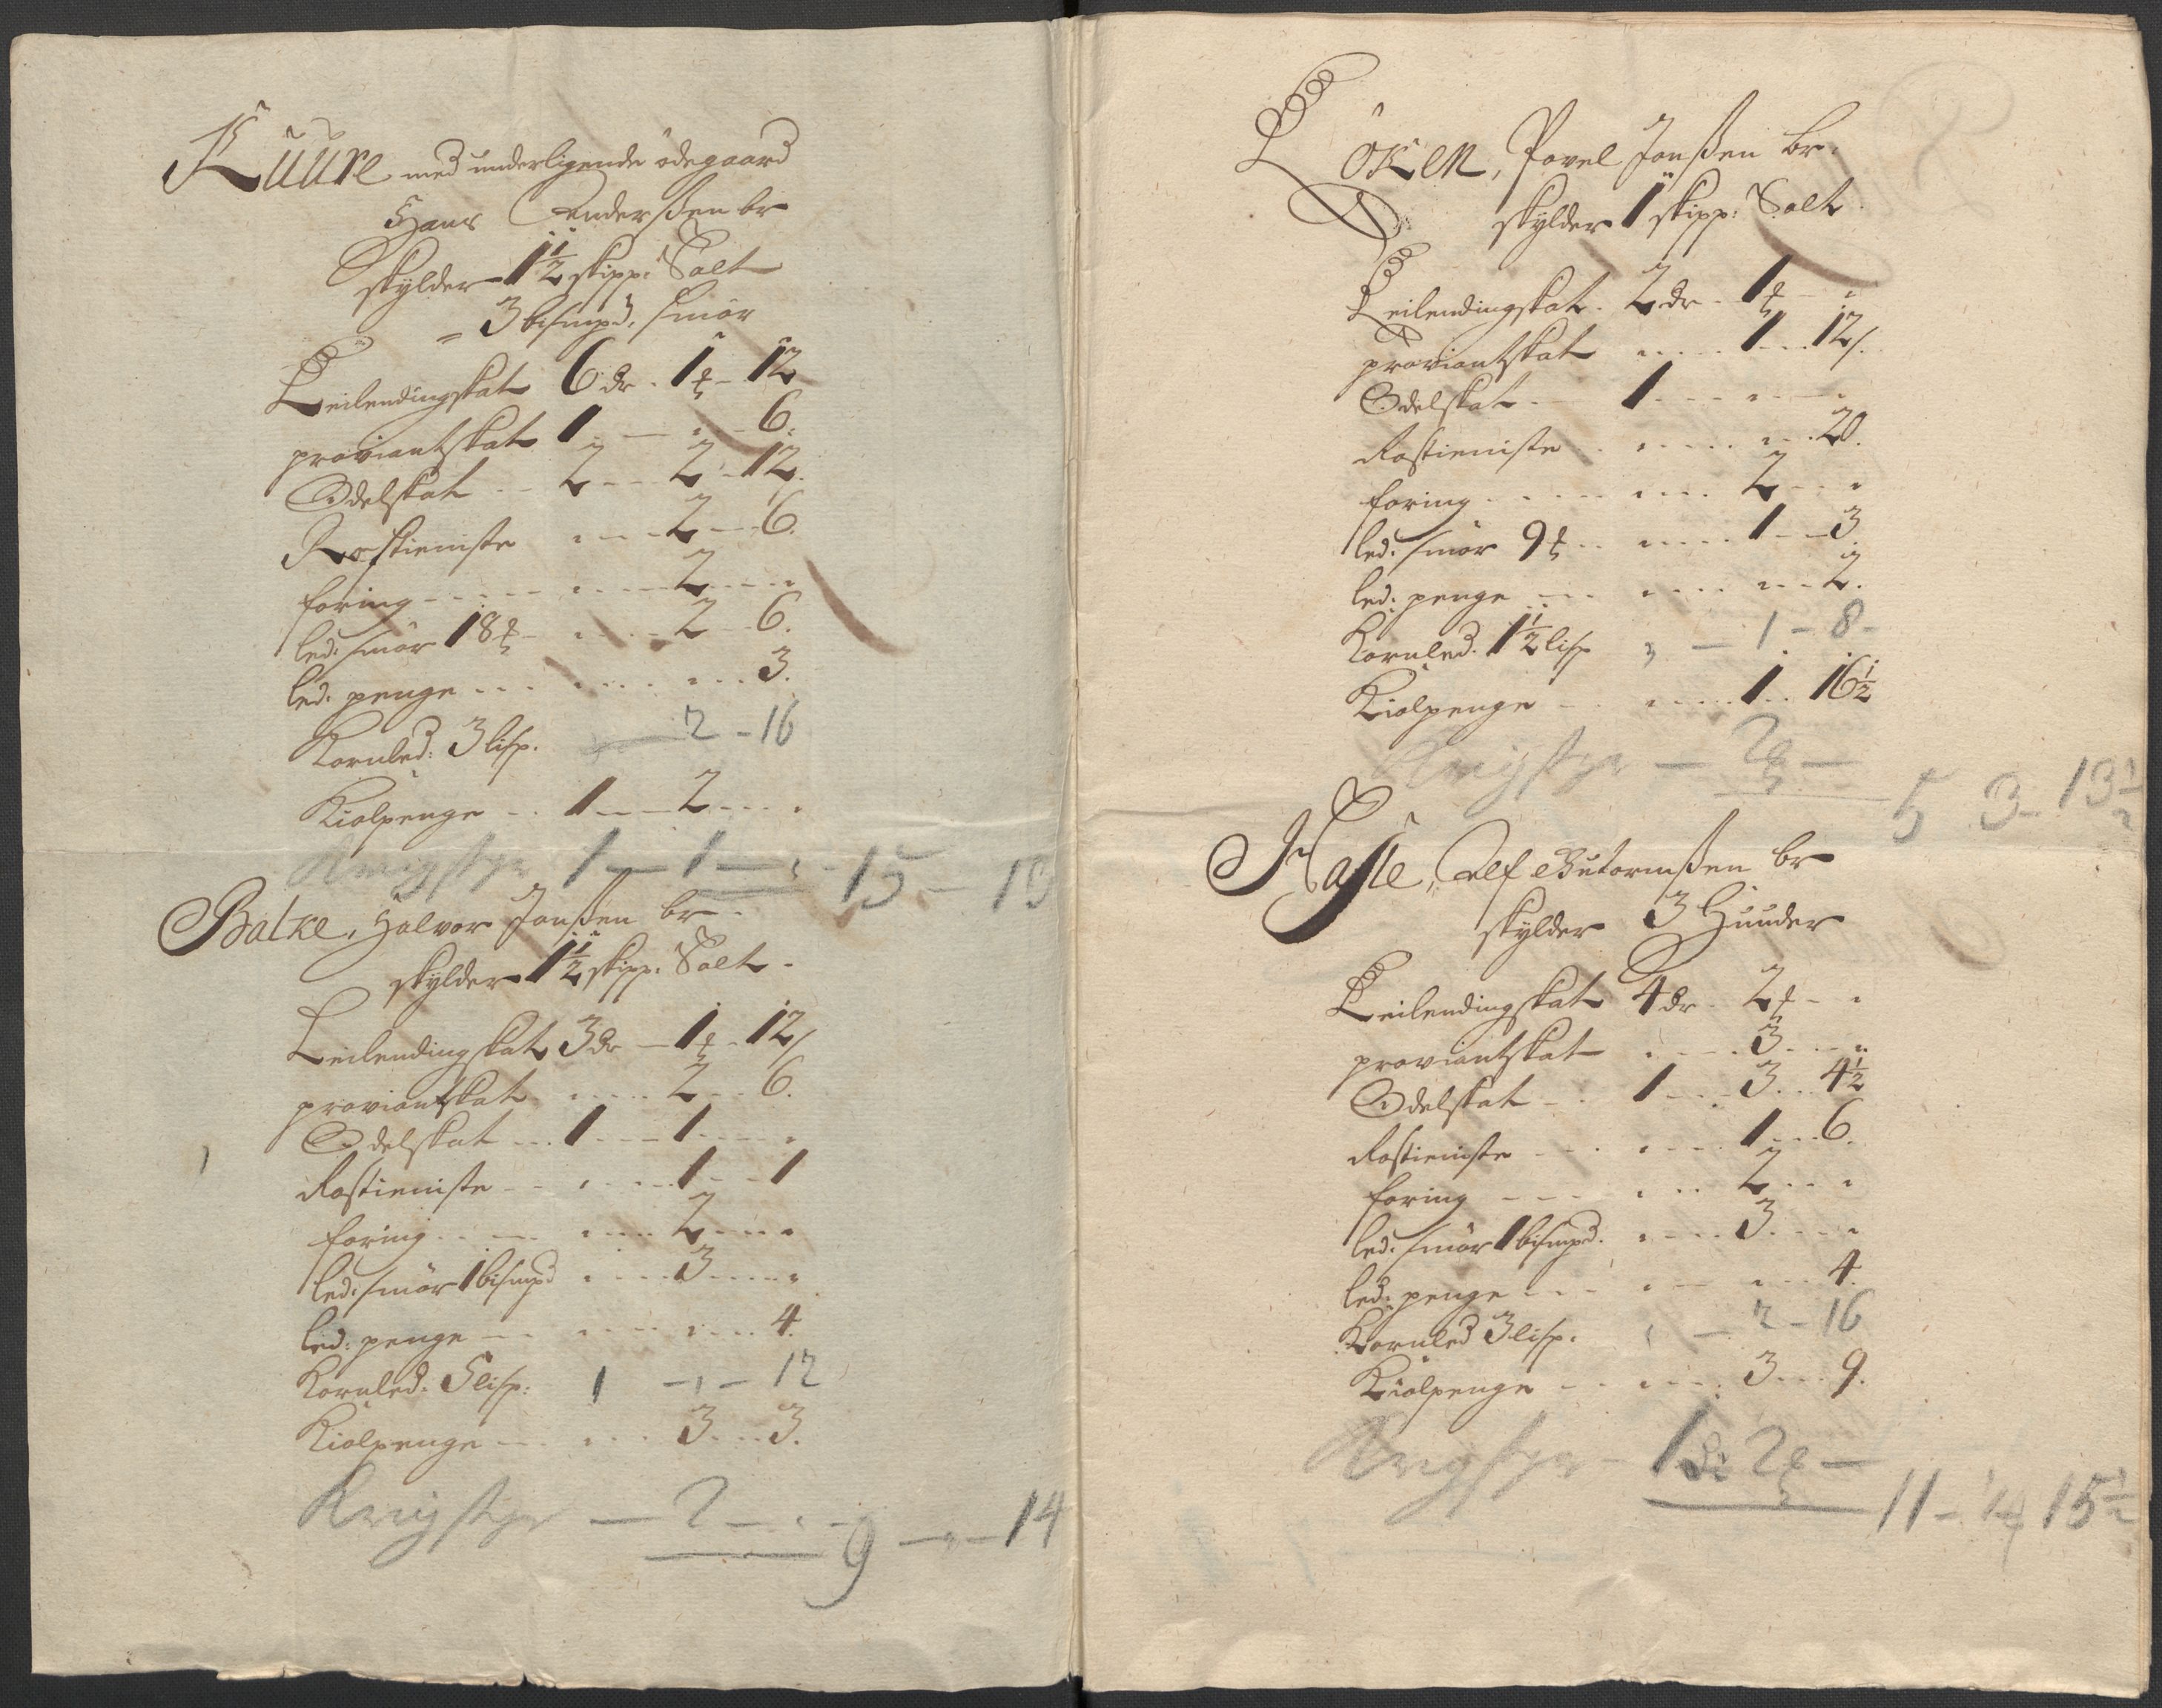 Kuure med underligende ödegaard
Hans Andersßen br
skylder 1½ skipp: Salt
= 3 bismpd. smör
Leilendingskat 6 dr - 1 ƶ - 12
proviantskat 1 - - 6.
Odelskat - 2 - - 2 - 12.
Rostieniste - - 2 - - 6.
foring - - - 2 - - -
led: smör 18 ƶ - - 2 - 6.
led: penge - - - 3.
Kornled: 3 lisp. - 2 - 16
Kiolpenge - - 1 - - 2 - - -
Krigstyr 1 - 1 - - 15 - 19
Balke, Halvor Jonßen br -
skylder 1½ skipp: Salt -
Leilendingskat 3 dr - 1 ƶ - 12 s
proviantskat - - 2 - - 6.
Odelskat - - 1 - - 1 - - -
Rostieniste - - - 1 - - 1
foring - - - 2 - - -
led: smör 1 bismpd - - 3 - - -
led: penge - - - 4.
Kornled: 5 lisp: 1 - - 12
Kiolpenge - - - 3 - - 3.
Krigstyr - 2 - - 9 - - 14
Löken, Povel Jonßen br.
skylder 1 skipp: Salt
Leilendingskat - 2 dr - 1 ƶ - -
proviantskat - - 1 - - 12 s.
Odelskat - - 1 - - -
Rostieniste - - - 20.
foring - - - 2 - -
led: smör 9 ƶ - - - 1 - - 3
led: penge - - - 2.
Kornled. 1½ lisp - 1 - 8 -
Kiolpenge - - - 1 - - 16½
Krigstyr - 2 ƶ - 5 3 - 13½
Hasle, Alf Gutormßen br
skylder 3 Huuder
Leilendingskat 4 dr - 2 ƶ - -
proviantskat - - 3 - - -
Odelskat - - 1 - - 3 - - 4½
Rostieniste - - - 1 - - 6.
foring - - - 2 - - -
led: smör 1 bismpd. - - 3 - - -
led: penge - - - 4.
Kornled 3 lisp. - 2 - 16
Kiolpenge - - - 3 - - 9.
Krigstyr - 1 dr 2 ƶ - 11 - 15½